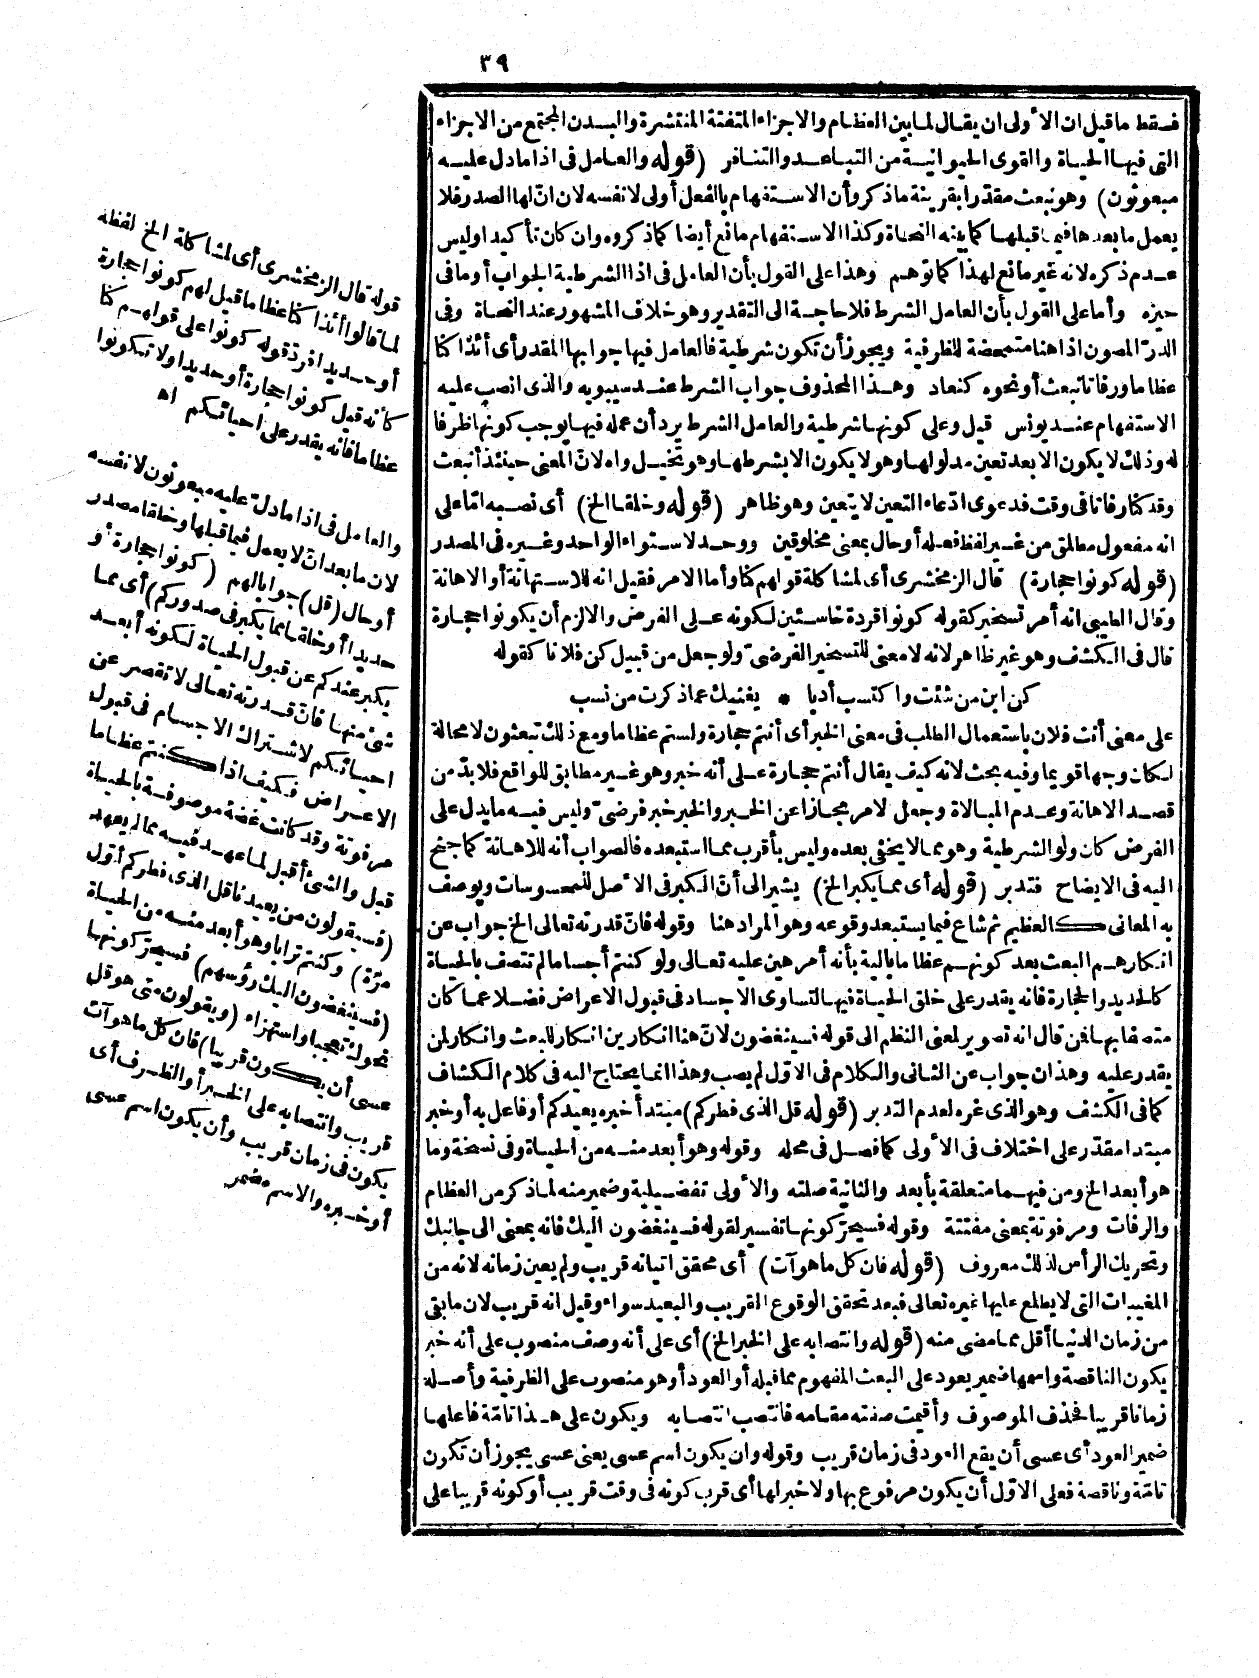 ٣٩
فقط ما قيل ان الأولى ان يقال لما بين العظام والاجزاء المتفتتة المنتشرة والبدن المجتمع من الاجزاء
التى فيها الحياة والقوى الحيوانية من التباعد والتنافر (قوله والعامل فى اذا ما دل عليه
مبعوثون) وهو نبعث مقدّرا بقرينة ما ذكر وأن الاستفهام بالفعل أولى لا نفسه لان انّ لها الصدر فلا
يعمل ما بعدها فيما قبلها كما بينه النحاة وكذا الاستفهام مانع أيضا كما ذكروه وان كان تأكيد او ليس
عدم ذكره لانه غير مانع لهذا كما توهم وهذا على القول بأن العامل فى اذا الشرطية الجواب أو ما فى
حيزه وأما على القول بأن العامل الشرط فلا حاجة الى التقدير وهو خلاف المشهور عند النحاة وفى
الدرّ المصون اذا هنا متمحضة للظرفية ويجوز أن تكون شرطية فالعامل فيها جوابها المقدر أى أئذا كنا
عظاما ورفاتا نبعث أو نحوه كنعاد وهذا المحذوف جواب الشرط عند سيبويه والذى انصب عليه
الاستفهام عند يونس قيل وعلى كونها شرطية والعامل الشرط يرد أن عمله فيها يوجب كونها ظرفا
له وذلك لا يكون الا بعد تعين مدلولها وهو لا يكون الا بشرطها وهو تخيل واه لانّ المعنى حينئذ أنبعث
وقد كنا رفاتا فى وقت فدعوى ادّعاء التعين لا يتعين وهو ظاهر (قوله وخلقا الخ) أى نصبه امّا على
انه مفعول مطلق من غير لفظ فعله أو حال بمعنى مخلوقين ووحد لاستواء الواحد وغيره فى المصدر
(قوله كونوا حجارة) قال الزمخشرى أى لمشاكلة قولهم كنا وأما الامر فقيل انه للاستهانة أو الاهانة
وقال الطيبى انه أمر تسخير كقوله كونوا قردة خاسئين لكونه على الفرض والالزم أن يكونوا حجارة
قال فى الكشف وهو غير ظاهر لانه لا معنى للتسخير الفرضىّ ولو جعل من قبيل كن فلانا كقوله
كن ابن من شئت واكتسب أدبا * يغنيك عما ذكرت من نسب
على معنى أنت فلان باستعمال الطلب فى معنى الخبر أى أنتم حجارة ولستم عظاما ومع ذلك تبعثون لا محالة
لكان وجها قويما وفيه بحث لانه كيف يقال أنتم حجارة على أنه خبر وهو غير مطابق للواقع فلا بدّ من
قصد الاهانة وعدم المبالاة وجعل الامر مجازا عن الخبر والخبر خبر فرضىّ وليس فيه ما يدل على
الفرض كان ولو الشرطية وهو مما لا يخفى بعده وليس بأقرب مما استبعده فالصواب أنه للاهانة كما جنح
اليه فى الايضاح فتدبر (قوله أى مما يكبر الخ) يشير الى أنّ الكبر فى الأصل للمحسوسات ويوصف
به المعانى كالعظيم ثم شاع فيما يستبعد وقوعه وهو المراد هنا وقوله فانّ قدرته تعالى الخ جواب عن
انكارهم البعث بعد كونهم عظاما بالية بأنه أمر هين عليه تعالى ولو كنتم أجساما لم تتصف بالحياة
كالحديد والحجارة فانه يقدر على خلق الحياة فيها لتساوى الاجساد فى قبول الاعراض فضلا عما كان
متصفا بها فمن قال انه تصوير لمعنى النظم الى قوله فسينغضون لانّ هنا انكارين انكار للبعث وانكار لمن
يقدر عليه وهذا جواب عن الثانى والكلام فى الاوّل لم يصب وهذا انما يحتاج اليه فى كلام الكشاف
كما فى الكشف وهو الذى غره لعدم التدبر (قوله قل الذى فطركم) مبتدأ خبره يعيدكم أو فاعل به أو خبر
مبتدا مقدّر على اختلاف فى الأولى كما فصل فى محله وقوله وهو أبعد منه من الحياة وفى نسخة وما
هو أبعد الخ ومن فيهما متعلقة بأبعد والثانية صلته والأولى تفضيلية وضمير منه لما ذكر من العظام
والرفات ومرفوتة بمعنى مفتتة وقوله فسيحرّكونها تفسير لقوله فسينغضون اليك فانه بمعنى الى جانبك
وتحريك الرأس لذلك معروف (قوله فان كل ما هو آت) أى محقق اتيانه قريب ولم يعين زمانه لانه من
المغيبات التى لا يطلع عليها غيره تعالى فبعد تحقق الوقوع القريب والبعيد سواء وقيل انه قريب لان ما بقى
من زمان الدنيا أقل مما مضى منه (قوله وانتصابه على الخبر الخ) أى على أنه وصف منصوب على أنه خبر
يكون الناقصة واسمها ضمير يعود على البعث المفهوم مما قبله أو العود أو هو منصوب على الظرفية وأصله
زمانا قريبا فحذف الموصوف وأقيمت صفته مقامه فانتصب انتصابه ويكون على هذا تامّة فاعلها
ضمير العود أى عسى أن يقع العود فى زمان قريب وقوله وان يكون اسم عسى يعنى عسى يجوز أن تكون
تامّة وناقصة فعلى الاوّل أن يكون مرفوع بها ولا خبر لها أى قرب كونه فى وقت قريب أو كونه قريبا على
قوله قال الزمخشرى أى لمشاكلة الخ لفظه
لما قالوا أئذا كنا عظاما قيل لهم كونوا حجارة
أو حديدا فردّ قوله كونوا على قولهم كنا
كأنه قيل كونوا حجارة أو حديدا ولا تكونوا
عظاما فانه يقدر على احيائكم اه
والعامل فى اذا ما دلّ عليه مبعوثون لا نفسه
لان ما بعد انّ لا يعمل فيما قبلها وخلقا مصدر
أو حال (قل) جوابا لهم (كونوا حجارة أو
حديدا أو خلقا مما يكبر فى صدوركم) أى مما
يكبر عندكم عن قبول الحياة لكونه أبعد
شئ منها فانّ قدرته تعالى لا تقصر عن
احيائكم لاشتراك الاجسام فى قبول
الاعراض فكيف اذا كنتم عظاما
مرفوتة وقد كانت غضة موصوفة بالحياة
قبل والشئ أقبل لما عهد فيه مما لم يعهد
(فسيقولون من يعيدنا قل الذى فطركم أوّل
مرّة) وكنتم ترابا وهو أبعد منه من الحياة
(فسينغضون اليك رؤسهم) فسيحرّكونها
نحوك تعجبا واستهزاء (ويقولون متى هو قل
عسى أن يكون قريبا) فان كل ما هو آت
قريب وانتصابه على الخبر أو الظرف أى
يكون فى زمان قريب وأن يكون اسم عسى
أو خبره والاسم مضمر